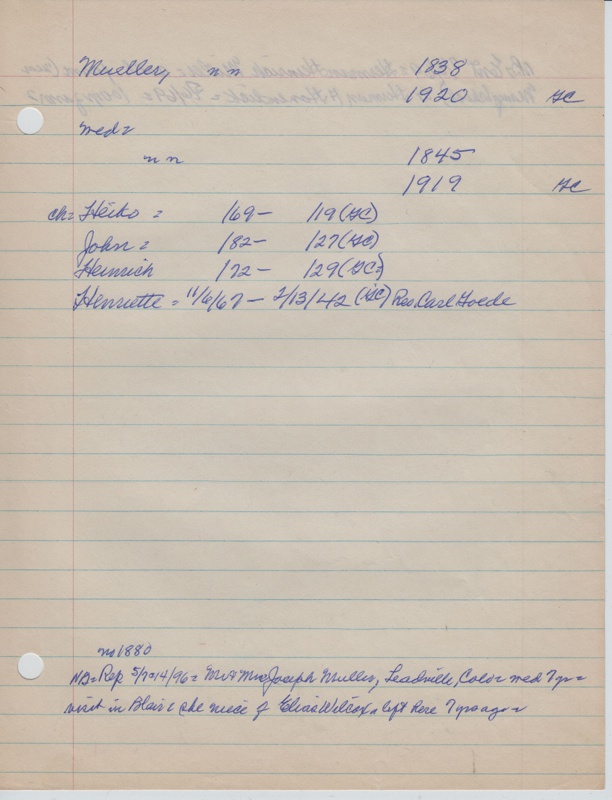 Mueller, n n 1838
1920 GC
med=
n n 1845
1919 GC
ch= Heiko = /69- /19 (GC)
John = /82- /27 (GC)
Heinrich /72- /29 (GC)
Henriette = 11/6/67 - 2/13/42 (GC) Rev Carl Goede
no 1880
NB= Rep 5/7=14/96= Mr & Mrs Joseph Muller, Leadville, Colo= med 7 yr=
visit in Blair & she niece of Elias Wilcox & left here 7 yrs ago=